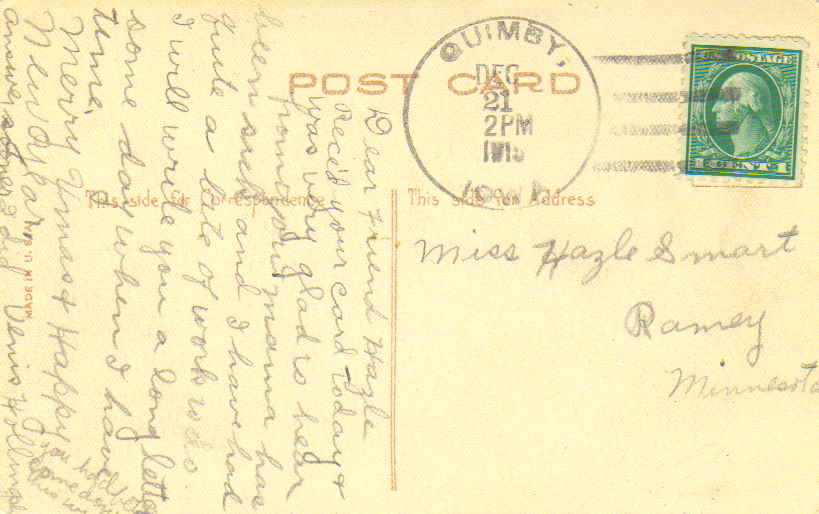 POST CARD
QUIMBY,
DEC
21
2PM
1915
IOWA
U.S. POSTAGE
1 CENT 1
This side for Correspondence
This side for Address
MADE IN U. S. A.
Miss Hazle Smart
Ramey
Minnesota
Dear Friend Hazle
Rec'd your card today &
was very glad to hear
from you mama has
been sick and I have had
quite a lote of work to do.
I will write you a long letter
some day when I have
time.
Merry Xmas & Happy
New Year
answer
you had
come down
this